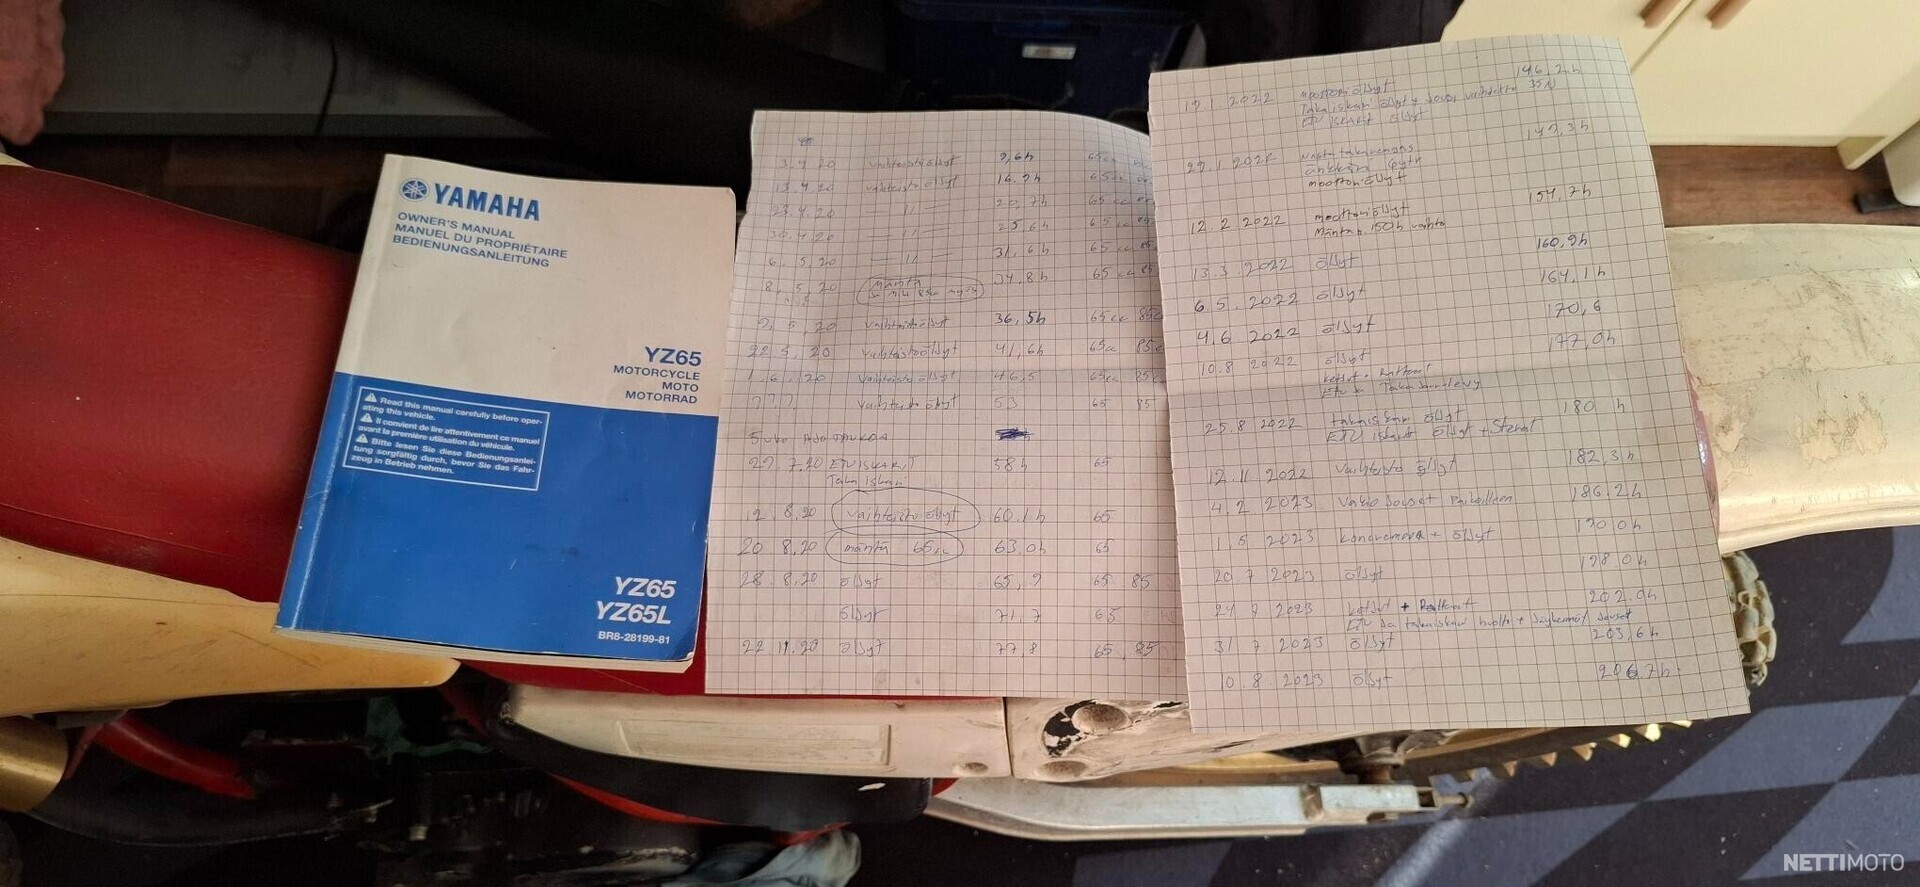 YAMAHA
OWNER'S MANUAL
MANUEL DU PROPRIÉTAIRE
BEDIENUNGSANLEITUNG
YZ65
MOTORCYCLE
MOTO
MOTORRAD
Read this manual carefully before oper-
ating this vehicle.
Il convient de lire attentivement ce manuel
avant la première utilisation du véhicule.
Bitte lesen Sie diese Bedienungsanlei-
tung sorgfältig durch, bevor Sie das Fahr-
zeug in Betrieb nehmen.
YZ65
YZ65L
BR8-28199-81
3.4.20 vaihteistoöljyt 9,6h 65cc
13.4.20 vaihteistoöljyt 16.9h 65cc
23.4.20 —11— 20,7h 65cc
30.4.20 —11— 25,6h 65cc
6.5.20 —11— 31,6h 65cc 85
8.5.20 mäntä 34,8h 65cc 85
9.5.20 vaihteistoöljyt 36,5h 65cc 85c
22.5.20 vaihteistoöljyt 41,6h 65cc 85c
1.6.20 vaihteistoöljyt 46,5 65cc 85c
???. öljyt 53 65 85
29.7.20 ETUISKARIT 58h 65
Taka iskari
12.8.20 vaihteisto öljyt 60.1h 65
20 8.20 mäntä 65cc 63,0h 65
28.8.20 öljyt 65,9 65 85
öljyt 71,7 65
22 11.20 öljyt 77,8 65 85
19.1.2022 moottoriöljyt 146,2h
Taka iskari öljyt
ETU ISKARIT öljyt
29.1.2022 149,3h
moottoriöljyt
12.2.2022 moottoriöljyt 154,7h
Mäntä n.150h vaihto
13.3.2022 öljyt 160,9h
6.5.2022 öljyt 164,1h
4.6.2022 öljyt 170,6
10.8 2022 öljyt 177,0h
ketjut + Rattaat
ETU ja Taka jarrulevy
25.8 2022 takaiskari öljyt 180 h
ETU iskarit öljyt +
12.11 2022 vaihteisto öljyt 182,3h
4.2 2023 Vakio Jouset Paikoilleen 186.2h
1.5 2023 öljyt 190.0h
20.7 2023 öljyt 198.0h
24.7 2023 ketjut + Rattaat 202.0h
ETU ja takaiskari huolto + jouset
31 7 2023 öljyt 203,6h
10.8.2023 öljyt 206.7h
NETTIMOTO